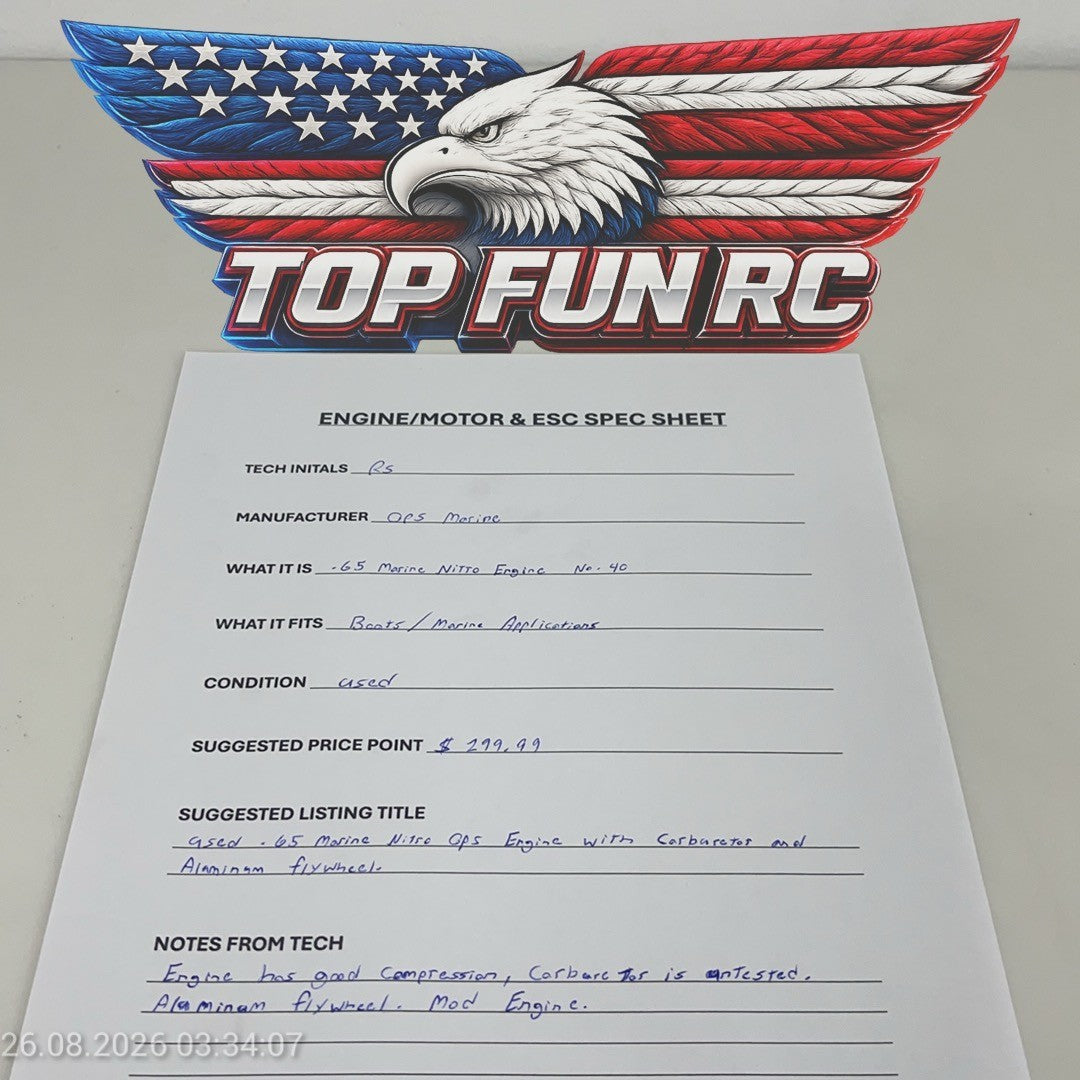 TOP FUN RC
ENGINE/MOTOR & ESC SPEC SHEET
TECH INITALS RS
MANUFACTURER OPS Marine
WHAT IT IS .65 Marine Nitro Engine No. 40
WHAT IT FITS Boats/Marine Applications
CONDITION used
SUGGESTED PRICE POINT $ 299.99
SUGGESTED LISTING TITLE
used .65 Marine Nitro Ops Engine with Carburetor and
Aluminum flywheel.
NOTES FROM TECH
Engine has good Compression, Carburetor is untested.
Aluminum flywheel. Mod Engine.
26.08.2026 03:34:07